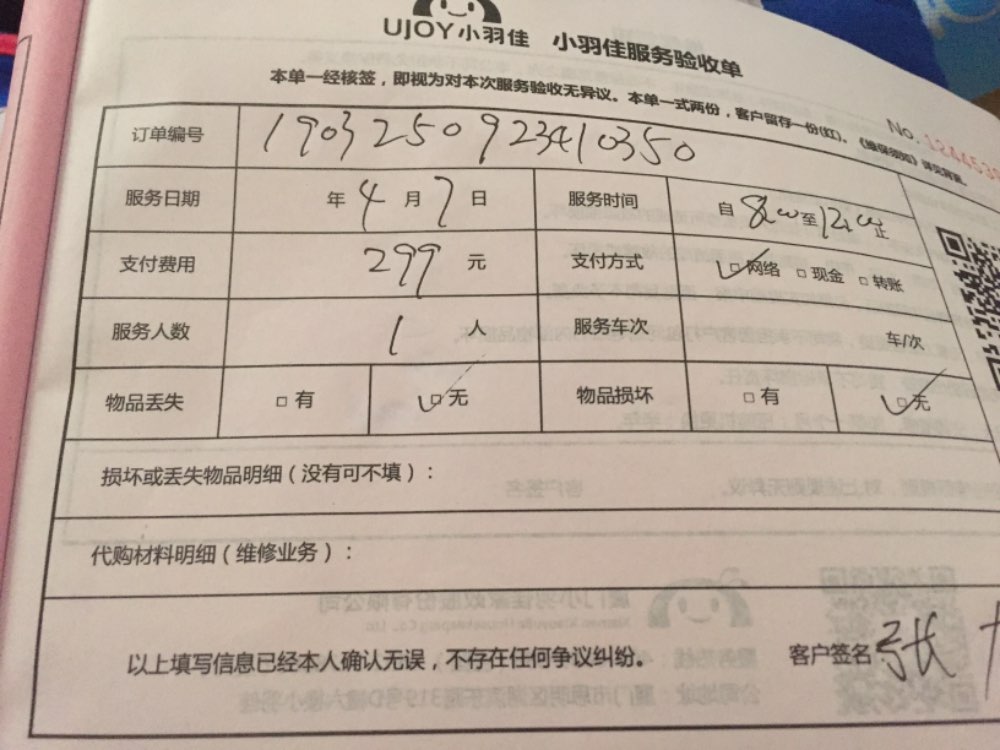 UJOY小羽佳 小羽佳服务验收单
本单一经核签，即视为对本次服务验收无异议。本单一式两份，客户留存一份(红)。《维保须知》详见背面
No. 124453
订单编号 1903250923410350
服务日期 年 4 月 7 日 服务时间 自 8:00 至 12:00 止
支付费用 299 元 支付方式 ☑网络 □现金 □转账
服务人数 1 人 服务车次 车/次
物品丢失 □有 ☑无 物品损坏 □有 ☑无
损坏或丢失物品明细（没有可不填）：
代购材料明细（维修业务）：
以上填写信息已经本人确认无误，不存在任何争议纠纷。 客户签名 张